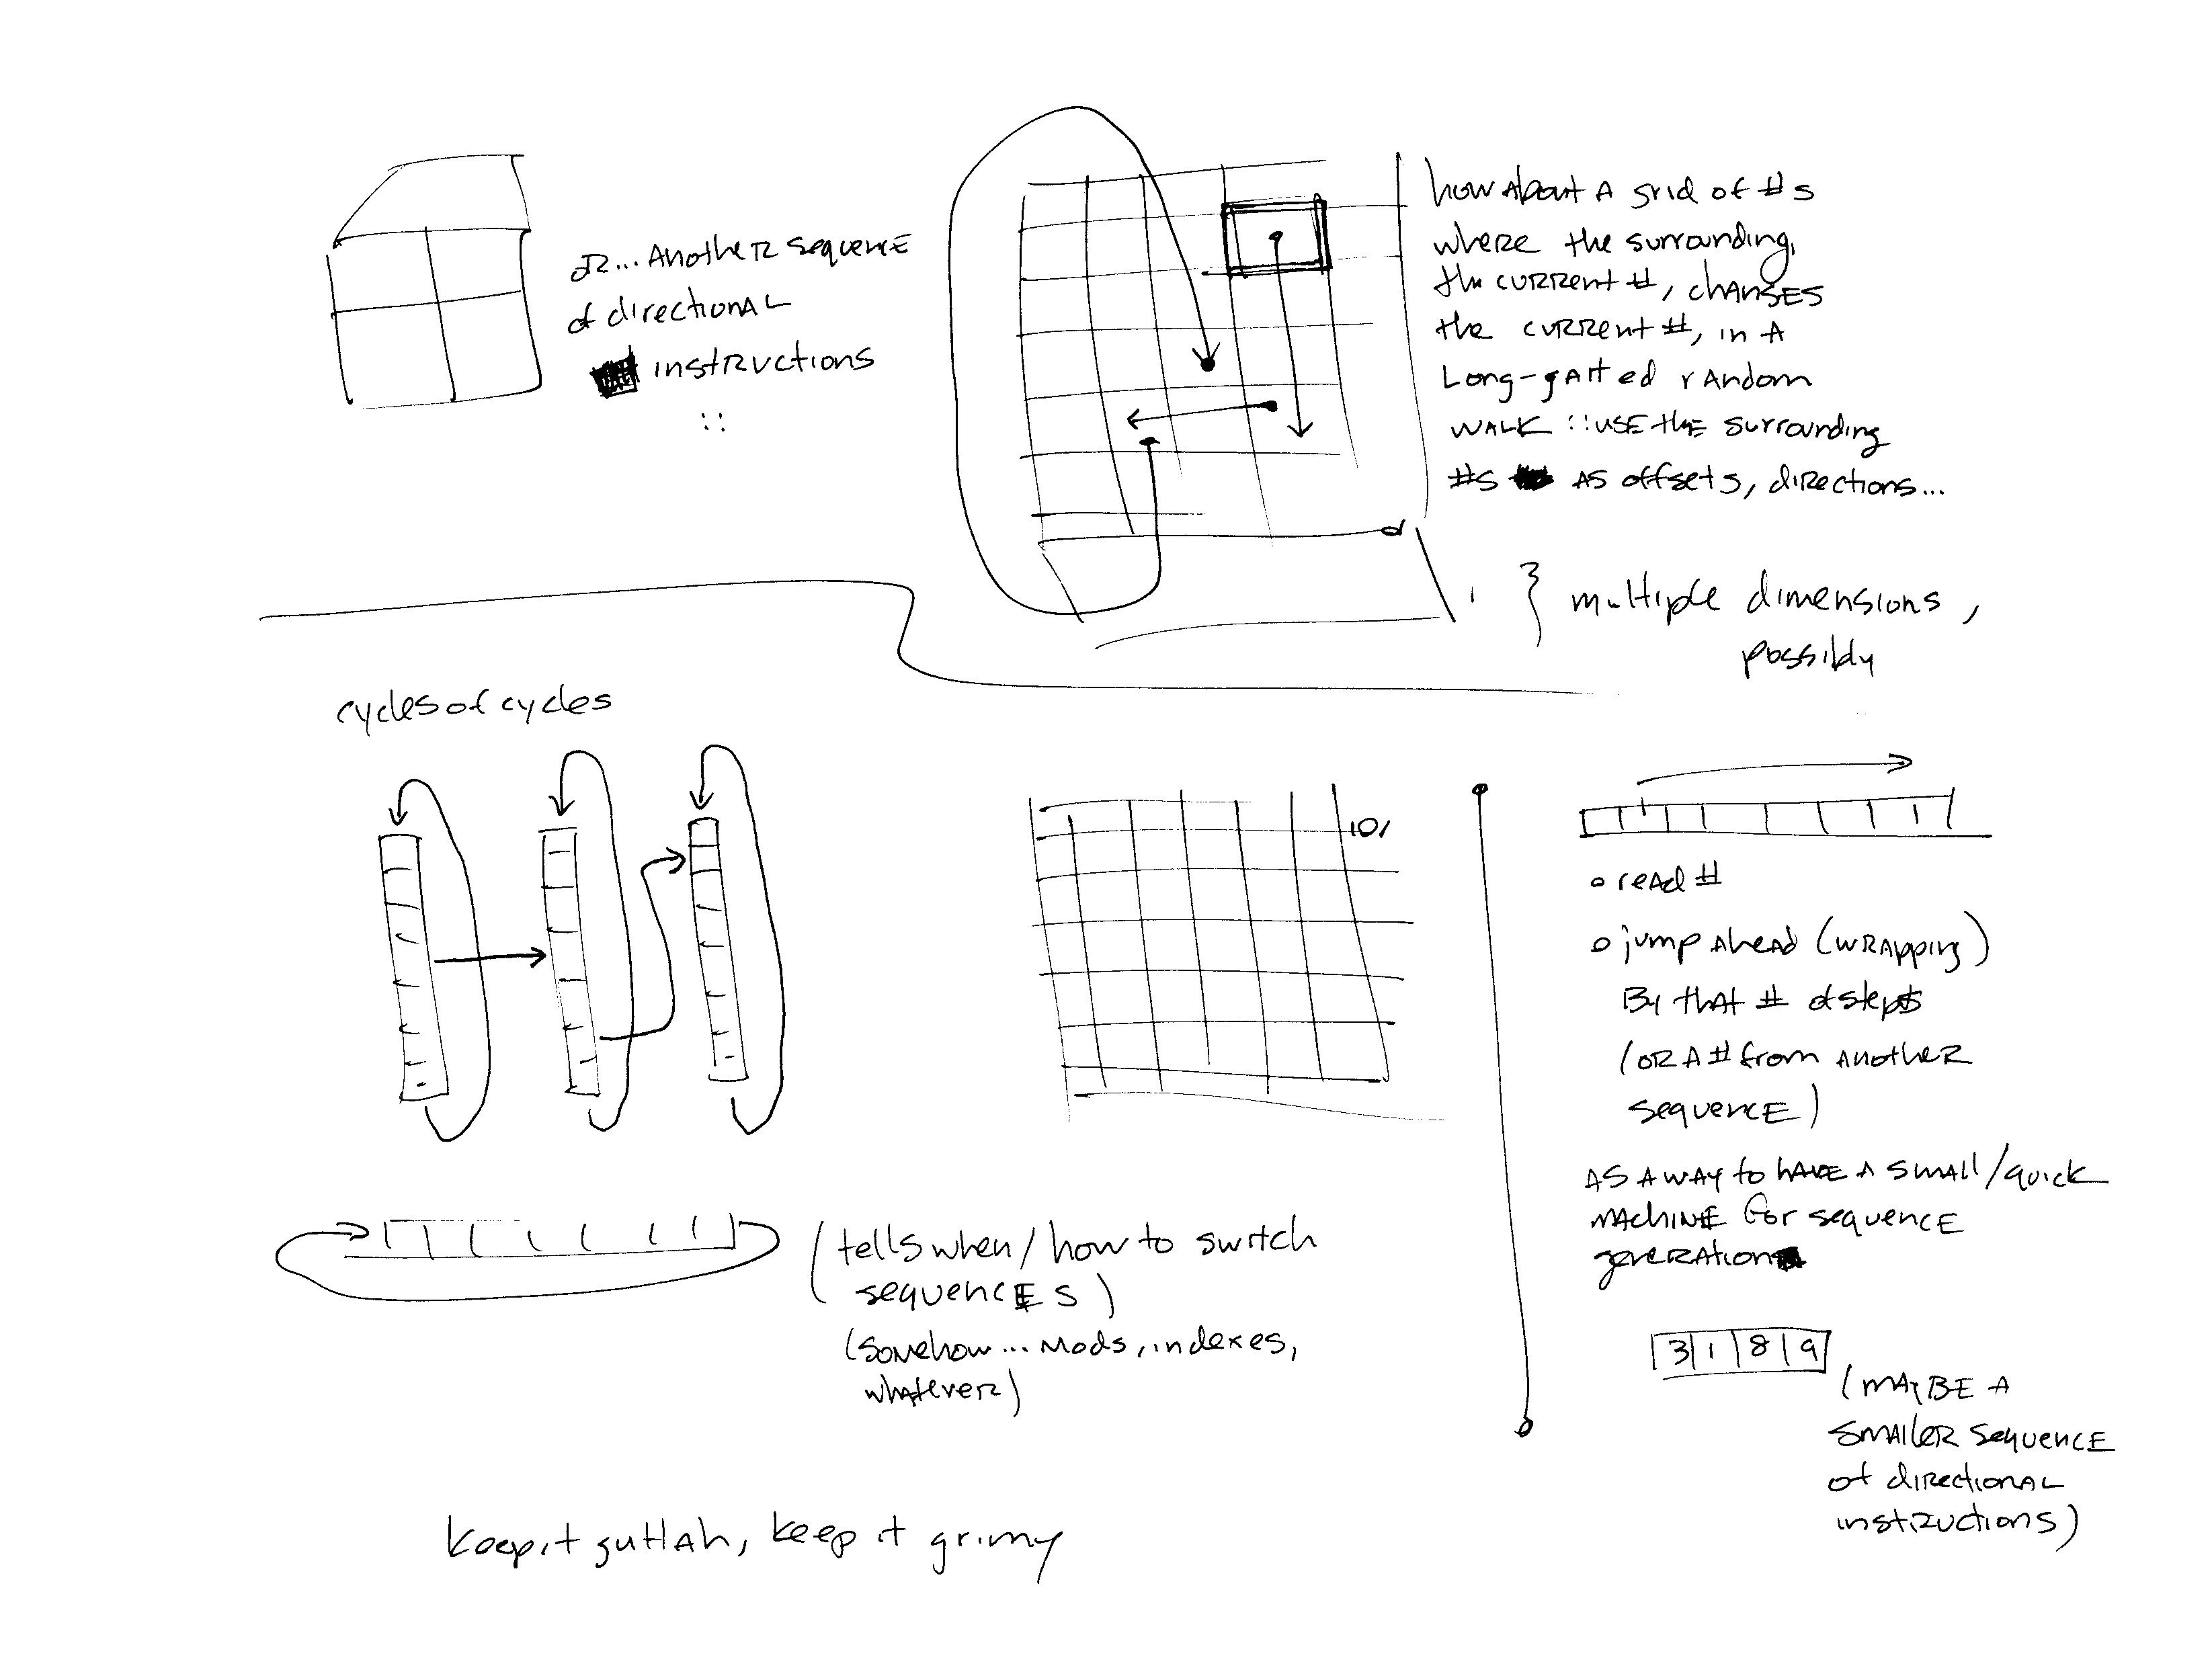 OR... Another sequence
of directional
instructions
::
how about a grid of #s
where the surrounding,
the current #, changes
the current #, in a
Long-gaited random
walk :: use the surrounding
#s as offsets, directions...
} multiple dimensions,
possibly
cycles of cycles
101
(tells when/how to switch
sequences)
(somehow... mods, indexes,
whatever)
o read #
o jump ahead (wrapping)
By that # of steps
(or a # from another
sequence)
as a way to have a small/quick
machine for sequence
generation
3|1|8|9
(maybe a
smaller sequence
of directional
instructions)
keep it guttah, keep it grimy